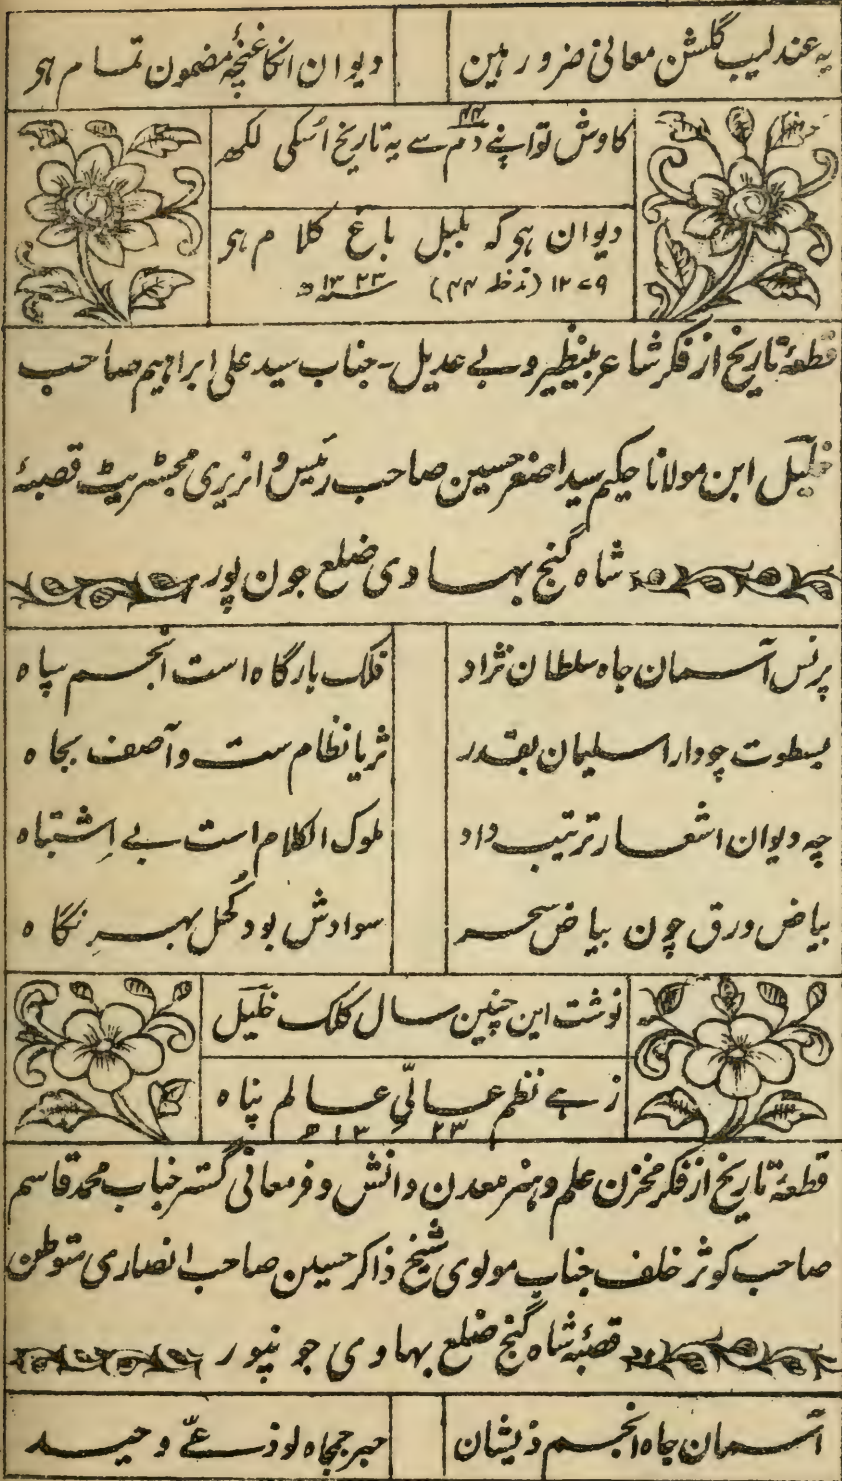 یہ عندلیب گلشن معانی ضرور ہین
دیوان انکا غنچۂ مضمون تمام ہر
کاوش تو اپنے دم سے یہ تاریخ اُسکی لکھہ
۴۴
دیوان ہر کہ بلبل باغ کلام ہر
۱۲۷۹ (تدخلہ ۴۴) ۱۳۲۳ سنہ ھ
قطعۂ تاریخ از فکر شاعر بینظیر و بے عدیل۔ جناب سید علی ابراہیم صاحب
خلیل ابن مولانا حکیم سید اصغر حسین صاحب رئیس و انریری مجسٹریٹ قصبۂ
شاہ گنج بہادی ضلع جون پور
پرنس آسمان جاہ سلطان نژاد
فلک بارگاہ است انجم سپاہ
بسطوت چو دارا سلیمان بقدر
ثریا نظام ست و آصف بجاہ
چہ دیوان اشعار ترتیب داد
ملوک الکلام است بے اِشتباہ
بیاض ورق چون بیاض سحر
سوادش بود کُحل بہرِ نگاہ
نوشت این چنین سال کلک خلیل
زہے نظم عالیِّ عالم پناہ
۱۳۲۳ ھ
قطعۂ تاریخ از فکر مخزن علم و ہنر معدن دانش و فر معانی گستر جناب محمد قاسم
صاحب کوثر خلف جناب مولوی شیخ ذاکر حسین صاحب انصاری متوطن
قصبۂ شاہ گنج ضلع بہادی جونپور
آسمان جاہ انجم ذیشان
حبر جمجاہ لوذعیّ وحید